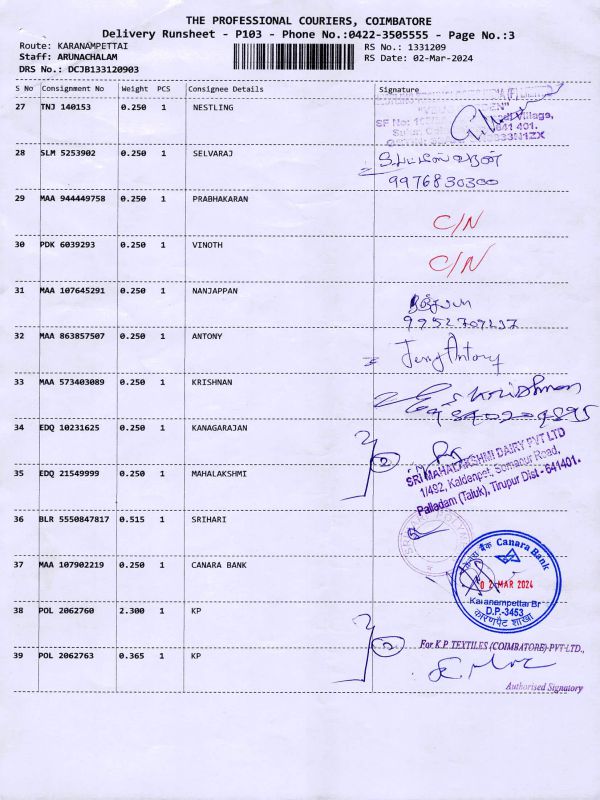 THE PROFESSIONAL COURIERS, COIMBATORE
Delivery Runsheet - P103 - Phone No.:0422-3505555 - Page No.:3
Route: KARANAMPETTAI RS No.: 1331209
Staff: ARUNACHALAM RS Date: 02-Mar-2024
DRS No.: DCJB133120903
S No Consignment No Weight PCS Consignee Details Signature
27 TNJ 140153 0.250 1 NESTLING
28 SLM 5253902 0.250 1 SELVARAJ
9976830300
29 MAA 944449758 0.250 1 PRABHAKARAN C/N
30 PDK 6039293 0.250 1 VINOTH C/N
31 MAA 107645291 0.250 1 NANJAPPAN
32 MAA 863857507 0.250 1 ANTONY Jeny Antony
33 MAA 573403089 0.250 1 KRISHNAN S Krishnan
34 EDQ 10231625 0.250 1 KANAGARAJAN
2
SRI MAHALAKSHMI DAIRY PVT LTD
1/492, Kaldenpet, Somanur Road,
Palladam (Taluk), Tirupur Dist - 641401.
35 EDQ 21549999 0.250 1 MAHALAKSHMI
36 BLR 5550847817 0.515 1 SRIHARI
37 MAA 107902219 0.250 1 CANARA BANK
केनरा बैंक Canara Bank
02 MAR 2024
Karanampettai Br
D.P.-3453
शाखा
38 POL 2062760 2.300 1 KP
2
For K.P. TEXTILES (COIMBATORE) PVT LTD.,
39 POL 2062763 0.365 1 KP
Authorised Signatory